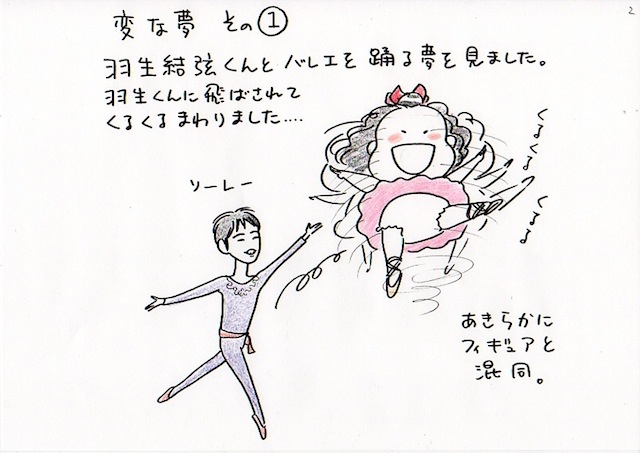 2
変な夢 その①
羽生結弦くんとバレエを踊る夢を見ました。
羽生くんに飛ばされて
くるくるまわりました....
くるくる
くるくる
ソーレー
あきらかに
フィギュアと
混同。